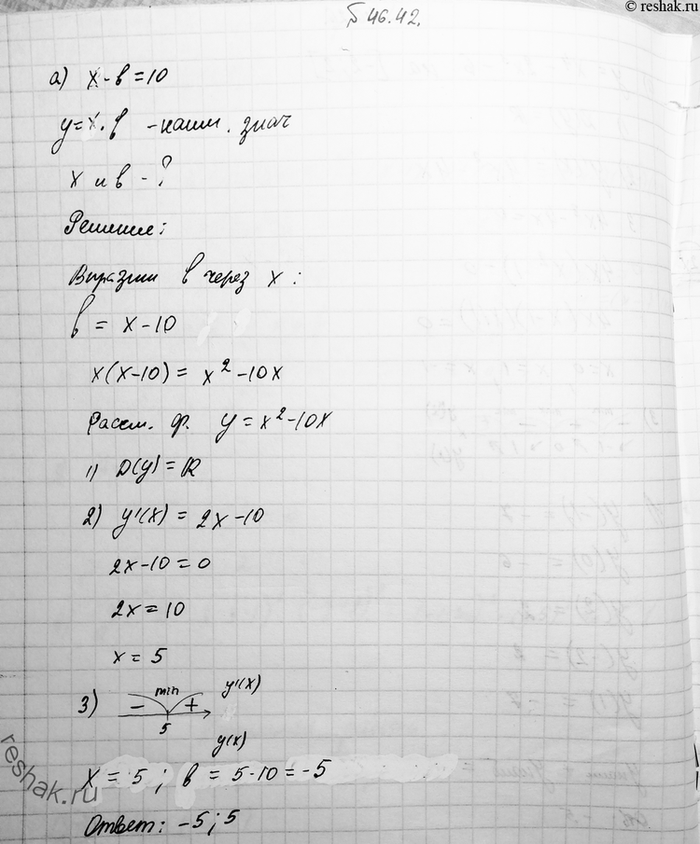 © reshak.ru
§ 46.42.
а) x - в = 10
y = x · в - наим. знач
x и в - ?
Решение:
Выразим в через x:
в = x - 10
x(x-10) = x² - 10x
Рассм. ф. y = x² - 10x
1) D(y) = R
2) y'(x) = 2x - 10
2x - 10 = 0
2x = 10
x = 5
3) - min + y'(x)
5
y(x)
x = 5; в = 5-10 = -5
Ответ: -5; 5
reshak.ru